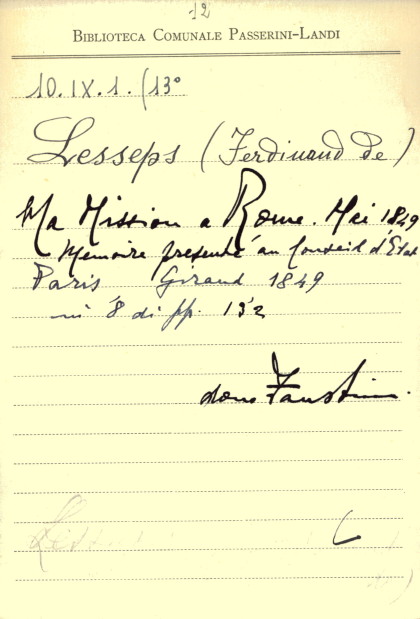 12
BIBLIOTECA COMUNALE PASSERINI-LANDI
10.IX.1. (13°
Lesseps (Ferdinand de)
Ma Mission a Rome. Mai 1849
Memoire presenté au Conseil d'État
Paris Giraud 1849
in 8 di pp. 132
dono Faustini.